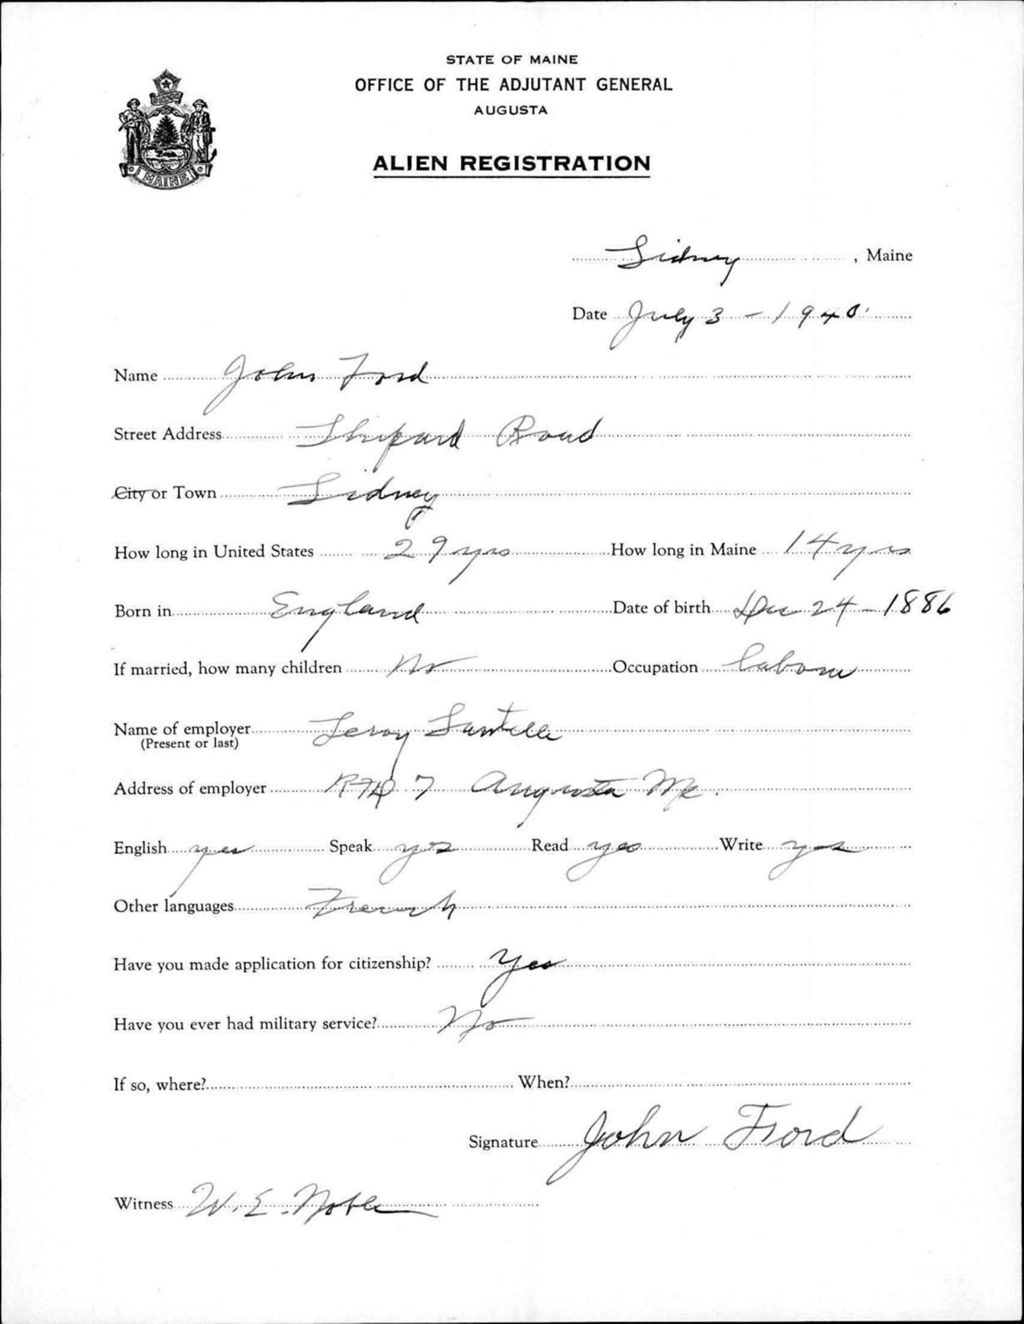 STATE OF MAINE
OFFICE OF THE ADJUTANT GENERAL
AUGUSTA
MAINE
ALIEN REGISTRATION
Sidney, Maine
Date July 3 - 1940.
Name John Ford
Street Address Shepard Road
City or Town Sidney
How long in United States 29 yrs How long in Maine 14 yrs
Born in England Date of birth Dec 24 - 1886
If married, how many children No Occupation
Name of employer Leroy
(Present or last)
Address of employer RFD 7 Augusta Me.
English yes Speak yes Read yes Write yes
Other languages French
Have you made application for citizenship? Yes
Have you ever had military service? No
If so, where? When?
Signature John Ford
Witness W. E. Noble